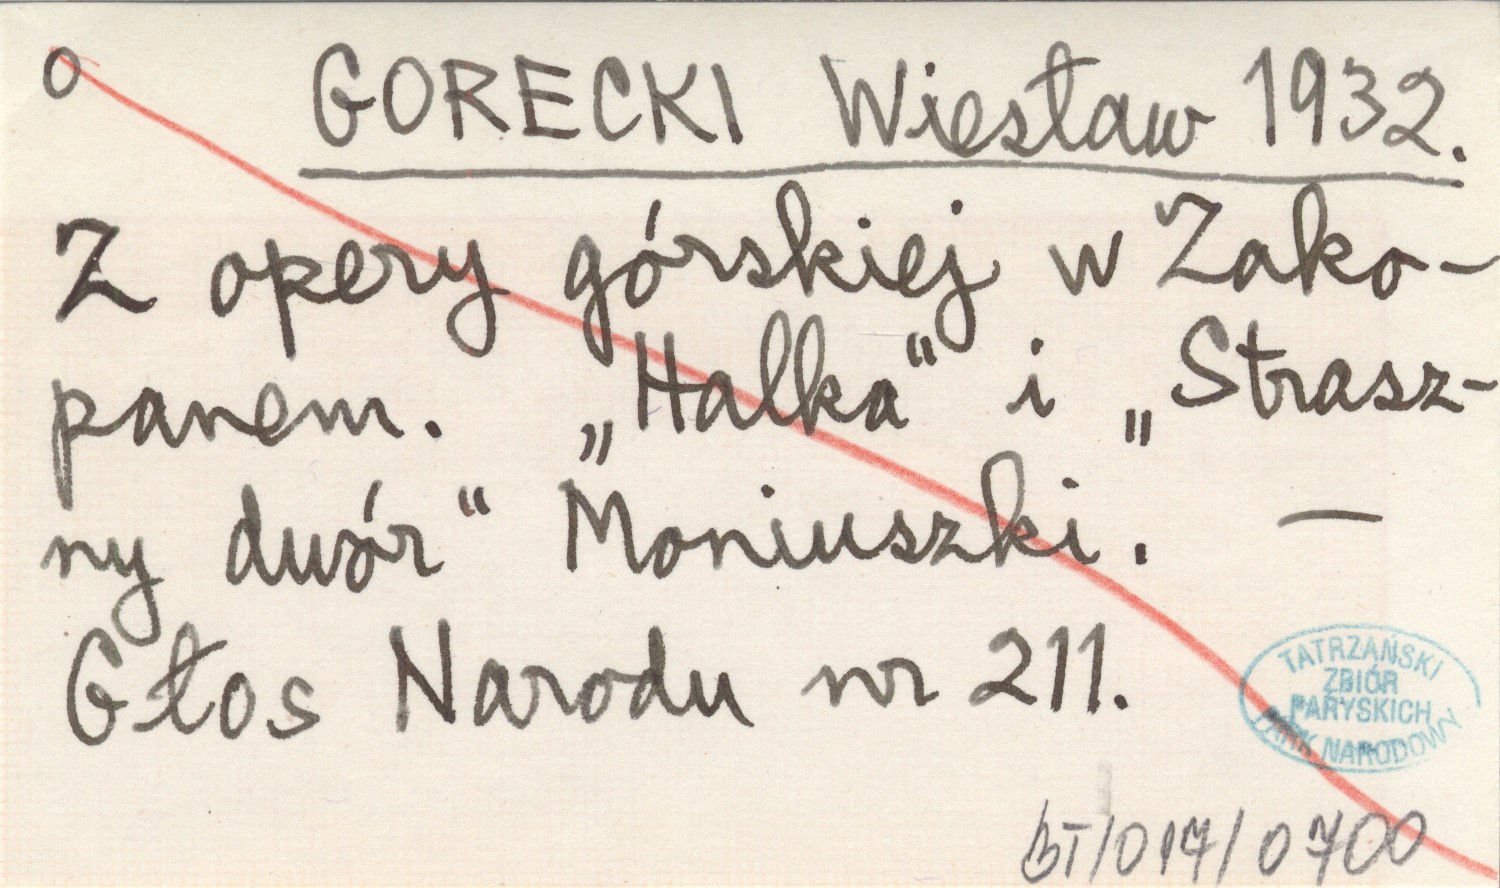 o GORECKI Wiesław 1932.
Z opery górskiej w Zako-
panem. „Halka“ i „Strasz-
ny dwór“ Moniuszki. —
Głos Narodu nr 211.
TATRZAŃSKI
ZBIÓR
PARYSKICH
PARK NARODOWY
BT/017/0700